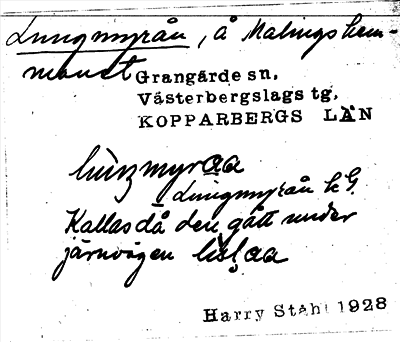 Lungmyrån, å Malingshem-
manet
Grangärde sn,
Västerbergslags tg,
KOPPARBERGS LÄN
Lungmyrån k G.
Kallas då den gått under
järnvägen
Harry Ståhl 1928